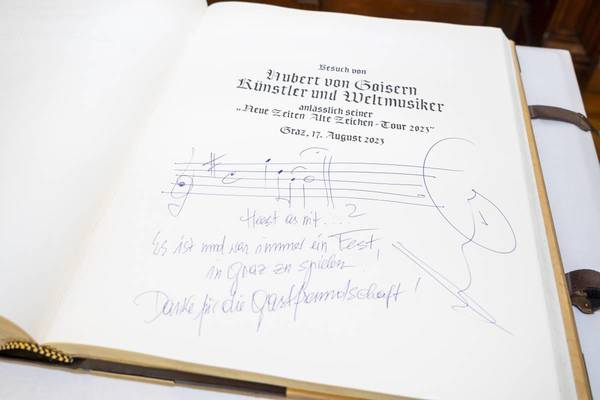 Besuch von
Hubert von Goisern
Künstler und Weltmusiker
anlässlich seiner
„Neue Zeiten Alte Zeichen-Tour 2023“
Graz, 17. August 2023
Heast as nit ....?
Es ist und war immer ein Fest
in Graz zu spielen!
Danke für die Gastfreundschaft!